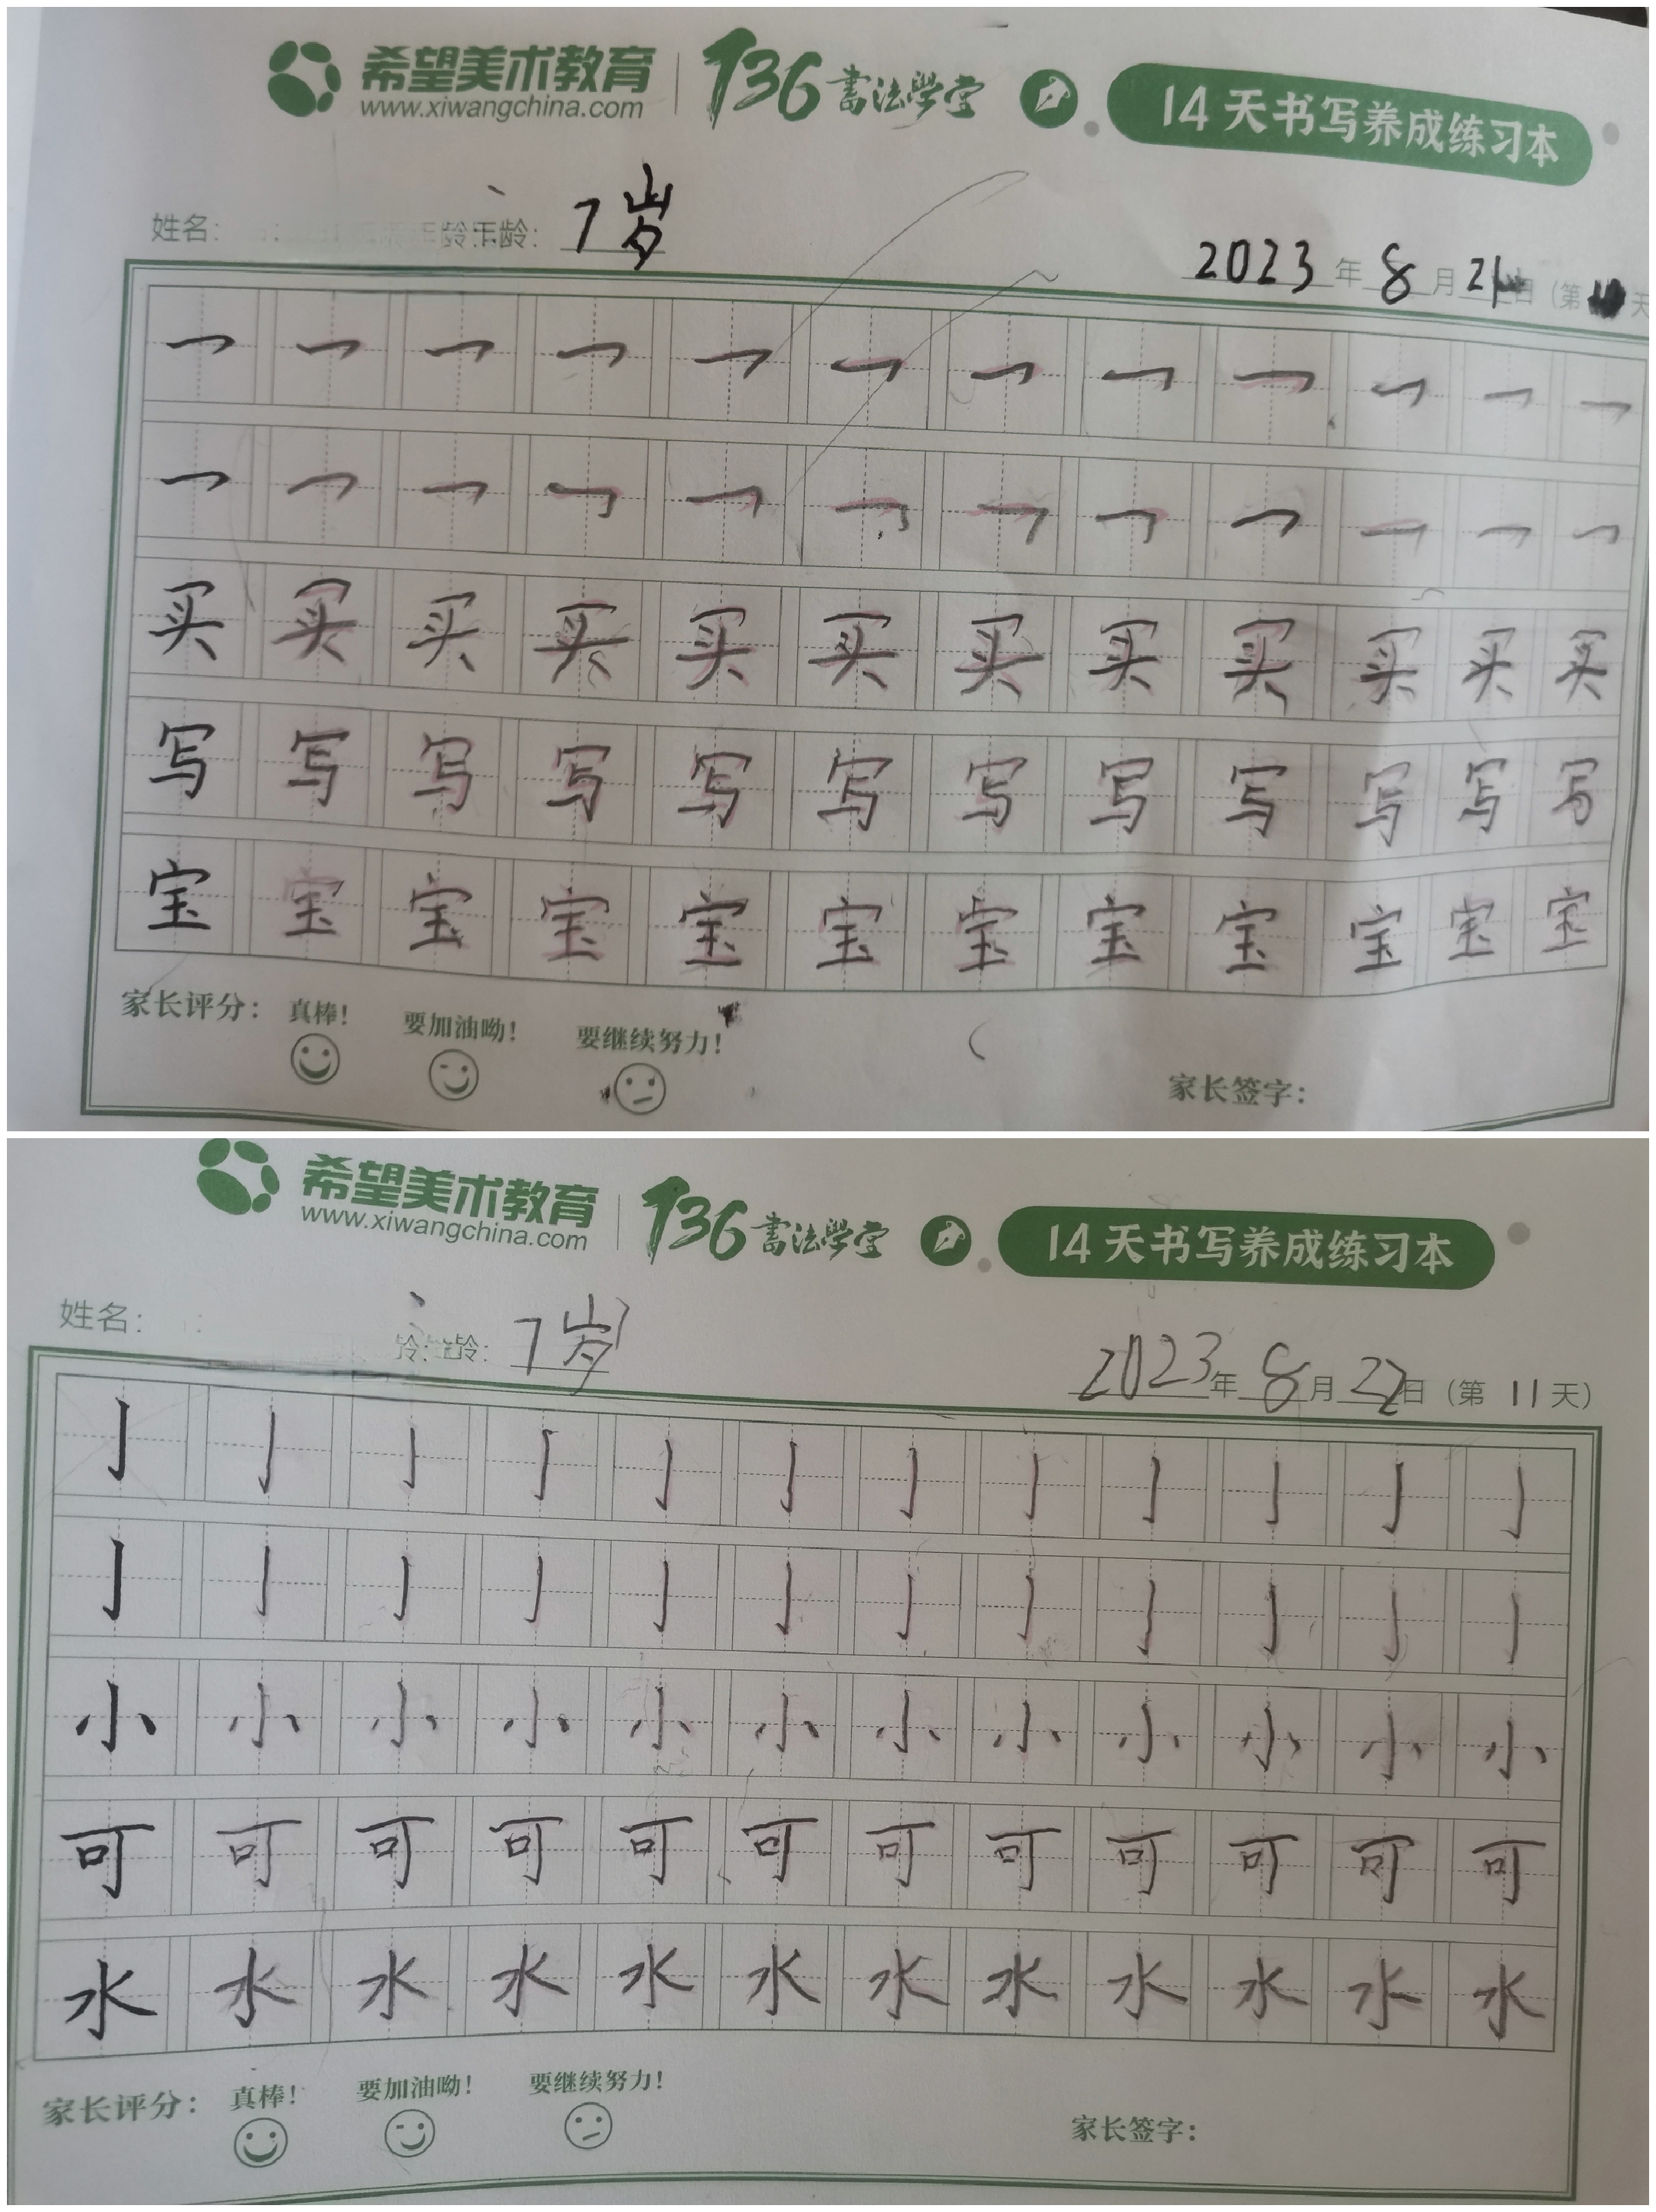 希望美术教育 136 書法學堂 14天书写养成练习本
www.xiwangchina.com
姓名: 年龄: 7岁 2023年8月21日 (第 天
买 买 买 买 买 买 买 买 买 买 买 买
写 写 写 写 写 写 写 写 写 写 写 写
宝 宝 宝 宝 宝 宝 宝 宝 宝 宝 宝 宝
家长评分: 真棒! 要加油呦! 要继续努力!
家长签字:
希望美术教育 136 書法學堂 14天书写养成练习本
www.xiwangchina.com
姓名: 龄: 7岁 2023年8月22日 (第 11 天)
亅 亅 亅 亅 亅 亅 亅 亅 亅 亅 亅 亅
亅 亅 亅 亅 亅 亅 亅 亅 亅 亅 亅 亅
小 小 小 小 小 小 小 小 小 小 小 小
可 可 可 可 可 可 可 可 可 可 可 可
水 水 水 水 水 水 水 水 水 水 水 水
家长评分: 真棒! 要加油呦! 要继续努力!
家长签字: